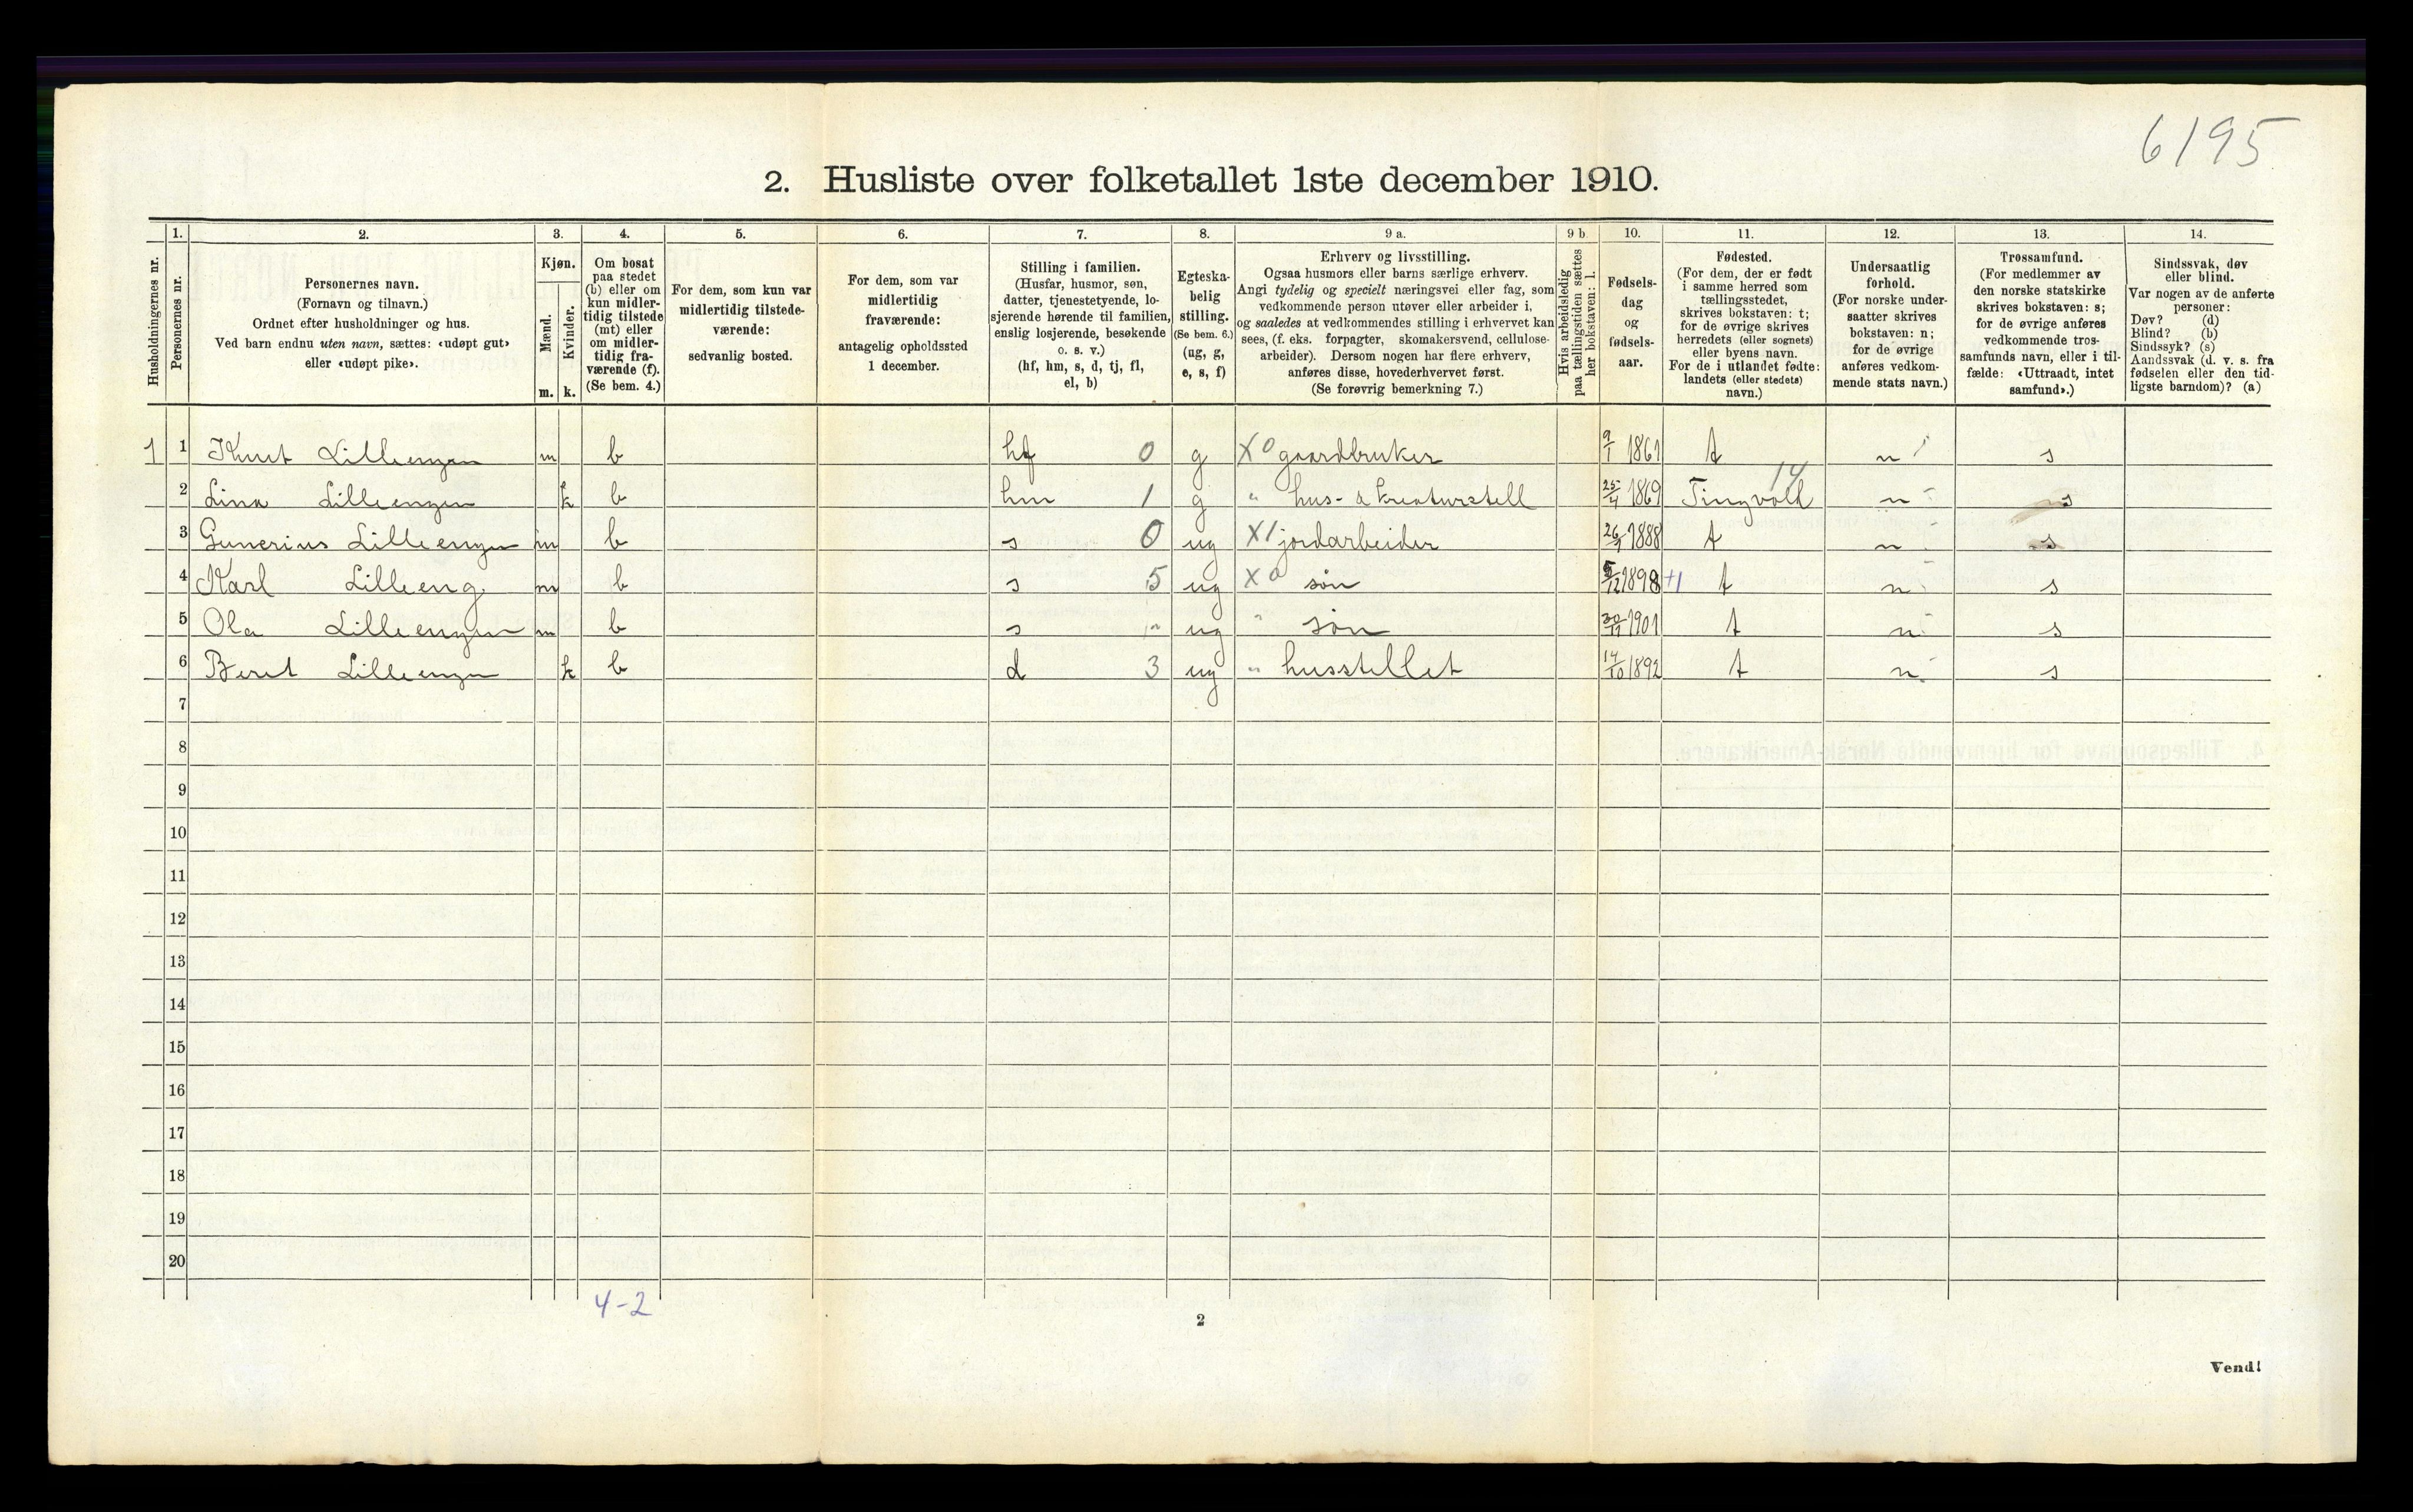 6195
2. Husliste over folketallet 1ste december 1910.
1. 2. 3. 4. 5. 6. 7. 8. 9 a. 9 b 10. 11. 12. 13. 14.
Husholdningernes nr.
Personernes nr.
Personernes navn.
(Fornavn og tilnavn.)
Ordnet efter husholdninger og hus.
Ved barn endnu uten navn, sættes: «udøpt gut»
eller «udøpt pike».
Kjøn.
Mænd.
Kvinder.
m. k.
Om bosat
paa stedet
(b) eller om
kun midler-
tidig tilstede
(mt) eller
om midler-
tidig fra-
værende (f).
(Se bem. 4.)
For dem, som kun var
midlertidig tilstede-
værende:
sedvanlig bosted.
For dem, som var
midlertidig
fraværende:
antagelig opholdssted
1 december.
Stilling i familien.
(Husfar, husmor, søn,
datter, tjenestetyende, lo-
sjerende hørende til familien,
enslig losjerende, besøkende
o. s. v.)
(hf, hm, s, d, tj, fl,
el, b)
Egteska-
belig
stilling.
(Se bem. 6.)
(ug, g,
e, s, f)
Erhverv og livsstilling.
Ogsaa husmors eller barns særlige erhverv.
Angi tydelig og specielt næringsvei eller fag, som
vedkommende person utøver eller arbeider i,
og saaledes at vedkommendes stilling i erhvervet kan
sees, (f. eks. forpagter, skomakersvend, cellulose-
arbeider). Dersom nogen har flere erhverv,
anføres disse, hovederhvervet først.
(Se forøvrig bemerkning 7.)
Hvis arbeidsledig
paa tællingstiden sættes
her bokstaven: l.
Fødsels-
dag
og
fødsels-
aar.
Fødested.
(For dem, der er født
i samme herred som
tællingsstedet,
skrives bokstaven: t;
for de øvrige skrives
herredets (eller sognets)
eller byens navn.
For de i utlandet fødte:
landets (eller stedets)
navn.)
Undersaatlig
forhold.
(For norske under-
saatter skrives
bokstaven: n;
for de øvrige
anføres vedkom-
mende stats navn.)
Trossamfund.
(For medlemmer av
den norske statskirke
skrives bokstaven: s;
for de øvrige anføres
vedkommende tros-
samfunds navn, eller i til-
fælde: «Uttraadt, intet
samfund».)
Sindssvak, døv
eller blind.
Var nogen av de anførte
personer:
Døv? (d)
Blind? (b)
Sindssyk? (s)
Aandssvak (d. v. s. fra
fødselen eller den tid-
ligste barndom)? (a)
1 1 Knut Lilleengen m b hf 0 g X0 gaardbruker 9/1 1861 t n s
2 Lina Lilleengen k b hm 1 g " hus- & kreaturstell 25/4 1869 Tingvold 14 n s
3 Gunerius Lilleengen m b s 0 ug X1 jordarbeider 26/9 1888 t n s
4 Karl Lilleeng m b s 5 ug X0 søn 5/12 1898 +1 t n s
5 Ola Lilleengen m b s " ug " søn 30/11 1901 t n s
6 Beret Lilleengen k b d 3 ug " husstellet 14/10 1892 t n s
7
8
9
10
11
12
13
14
15
16
17
18
19
20
4-2
2
Vend!